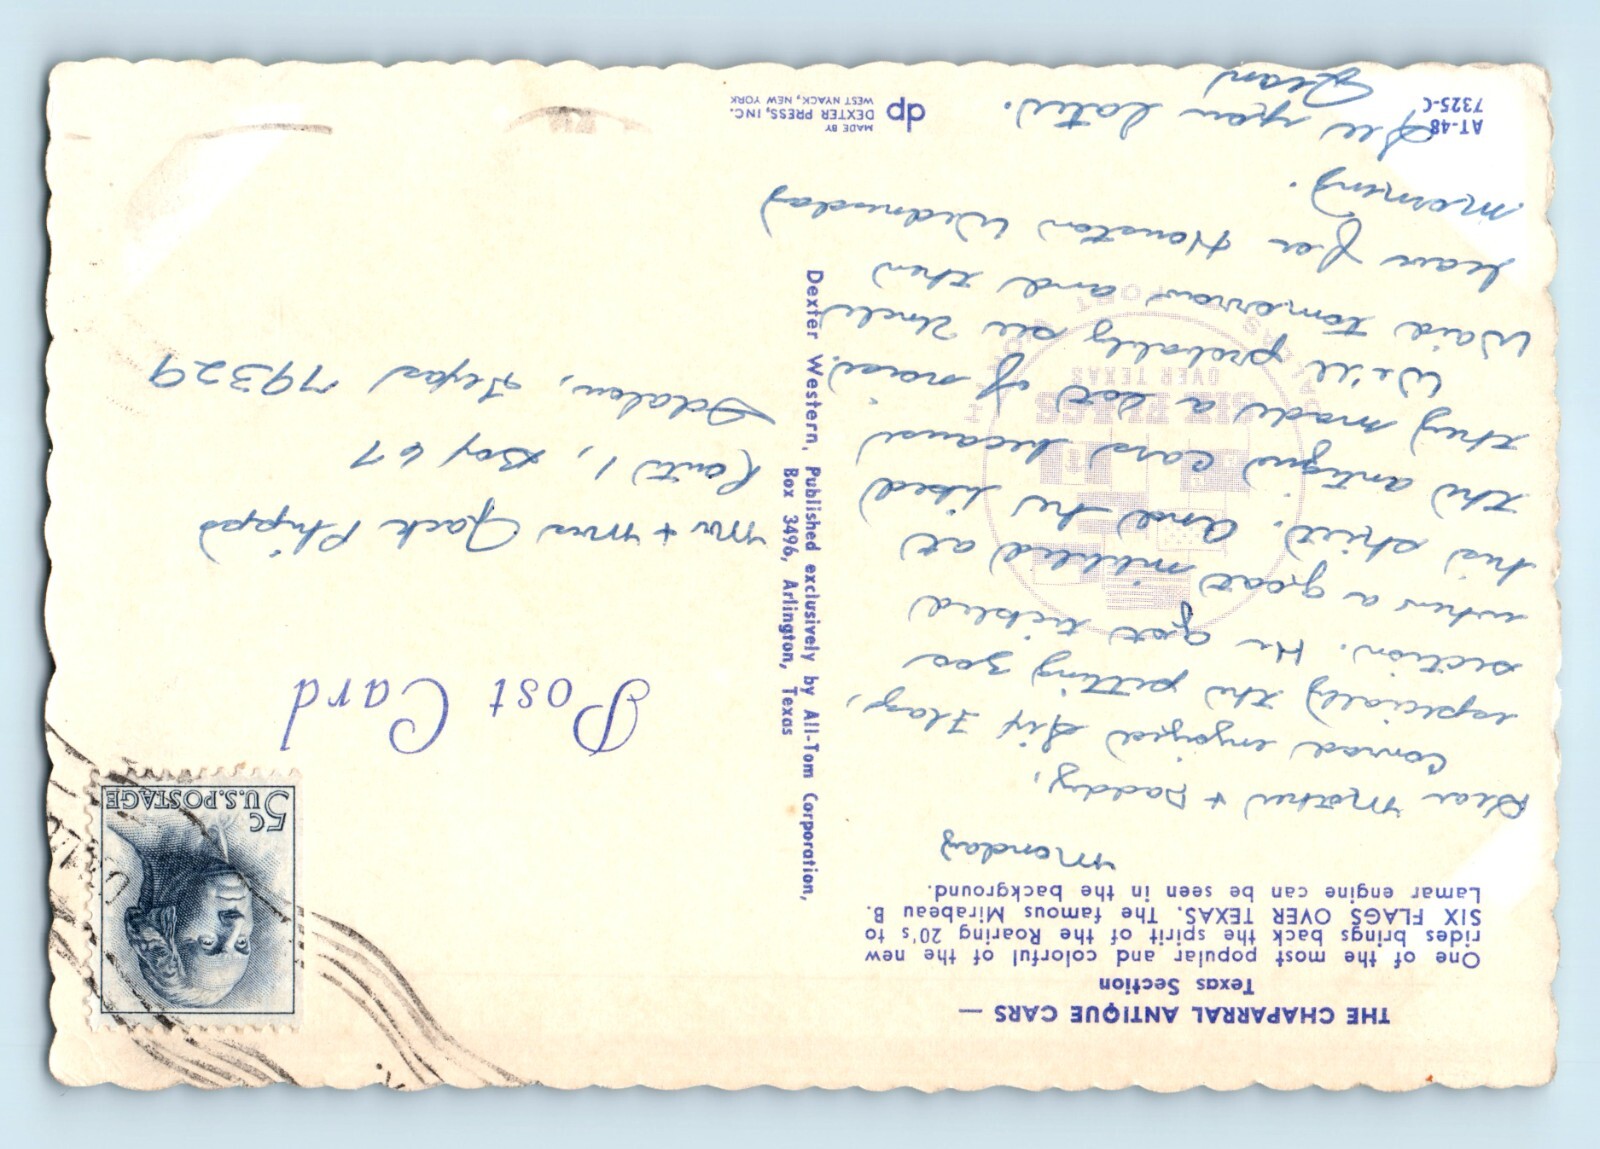 THE CHAPARRAL ANTIQUE CARS —
Texas Section
One of the most popular and colorful of the new
rides brings back the spirit of the Roaring 20's to
SIX FLAGS OVER TEXAS. The famous Mirabeau B.
Lamar engine can be seen in the background.
Monday
Dear Mother + Daddy,
Conrad enjoyed Six Flags,
especially the petting zoo
section. He got tickled
when a goat nibbled at
his shirt. And he liked
the antique cars because
they made a lot of noise.
We'll probably see Uncle
Waid tomorrow and then
leave for Houston Wednesday
morning.
See you later.
Jean
AT-48
7325-C
dp
MADE BY
DEXTER PRESS, INC.
WEST NYACK, NEW YORK
SIX FLAGS
OVER TEXAS
Dexter Western, Published exclusively by All-Tom Corporation,
Box 3496, Arlington, Texas
Post Card
5c
U.S. POSTAGE
Mr + Mrs Jack Phipps
Route 1, Box 67
Idalou, Texas 79329